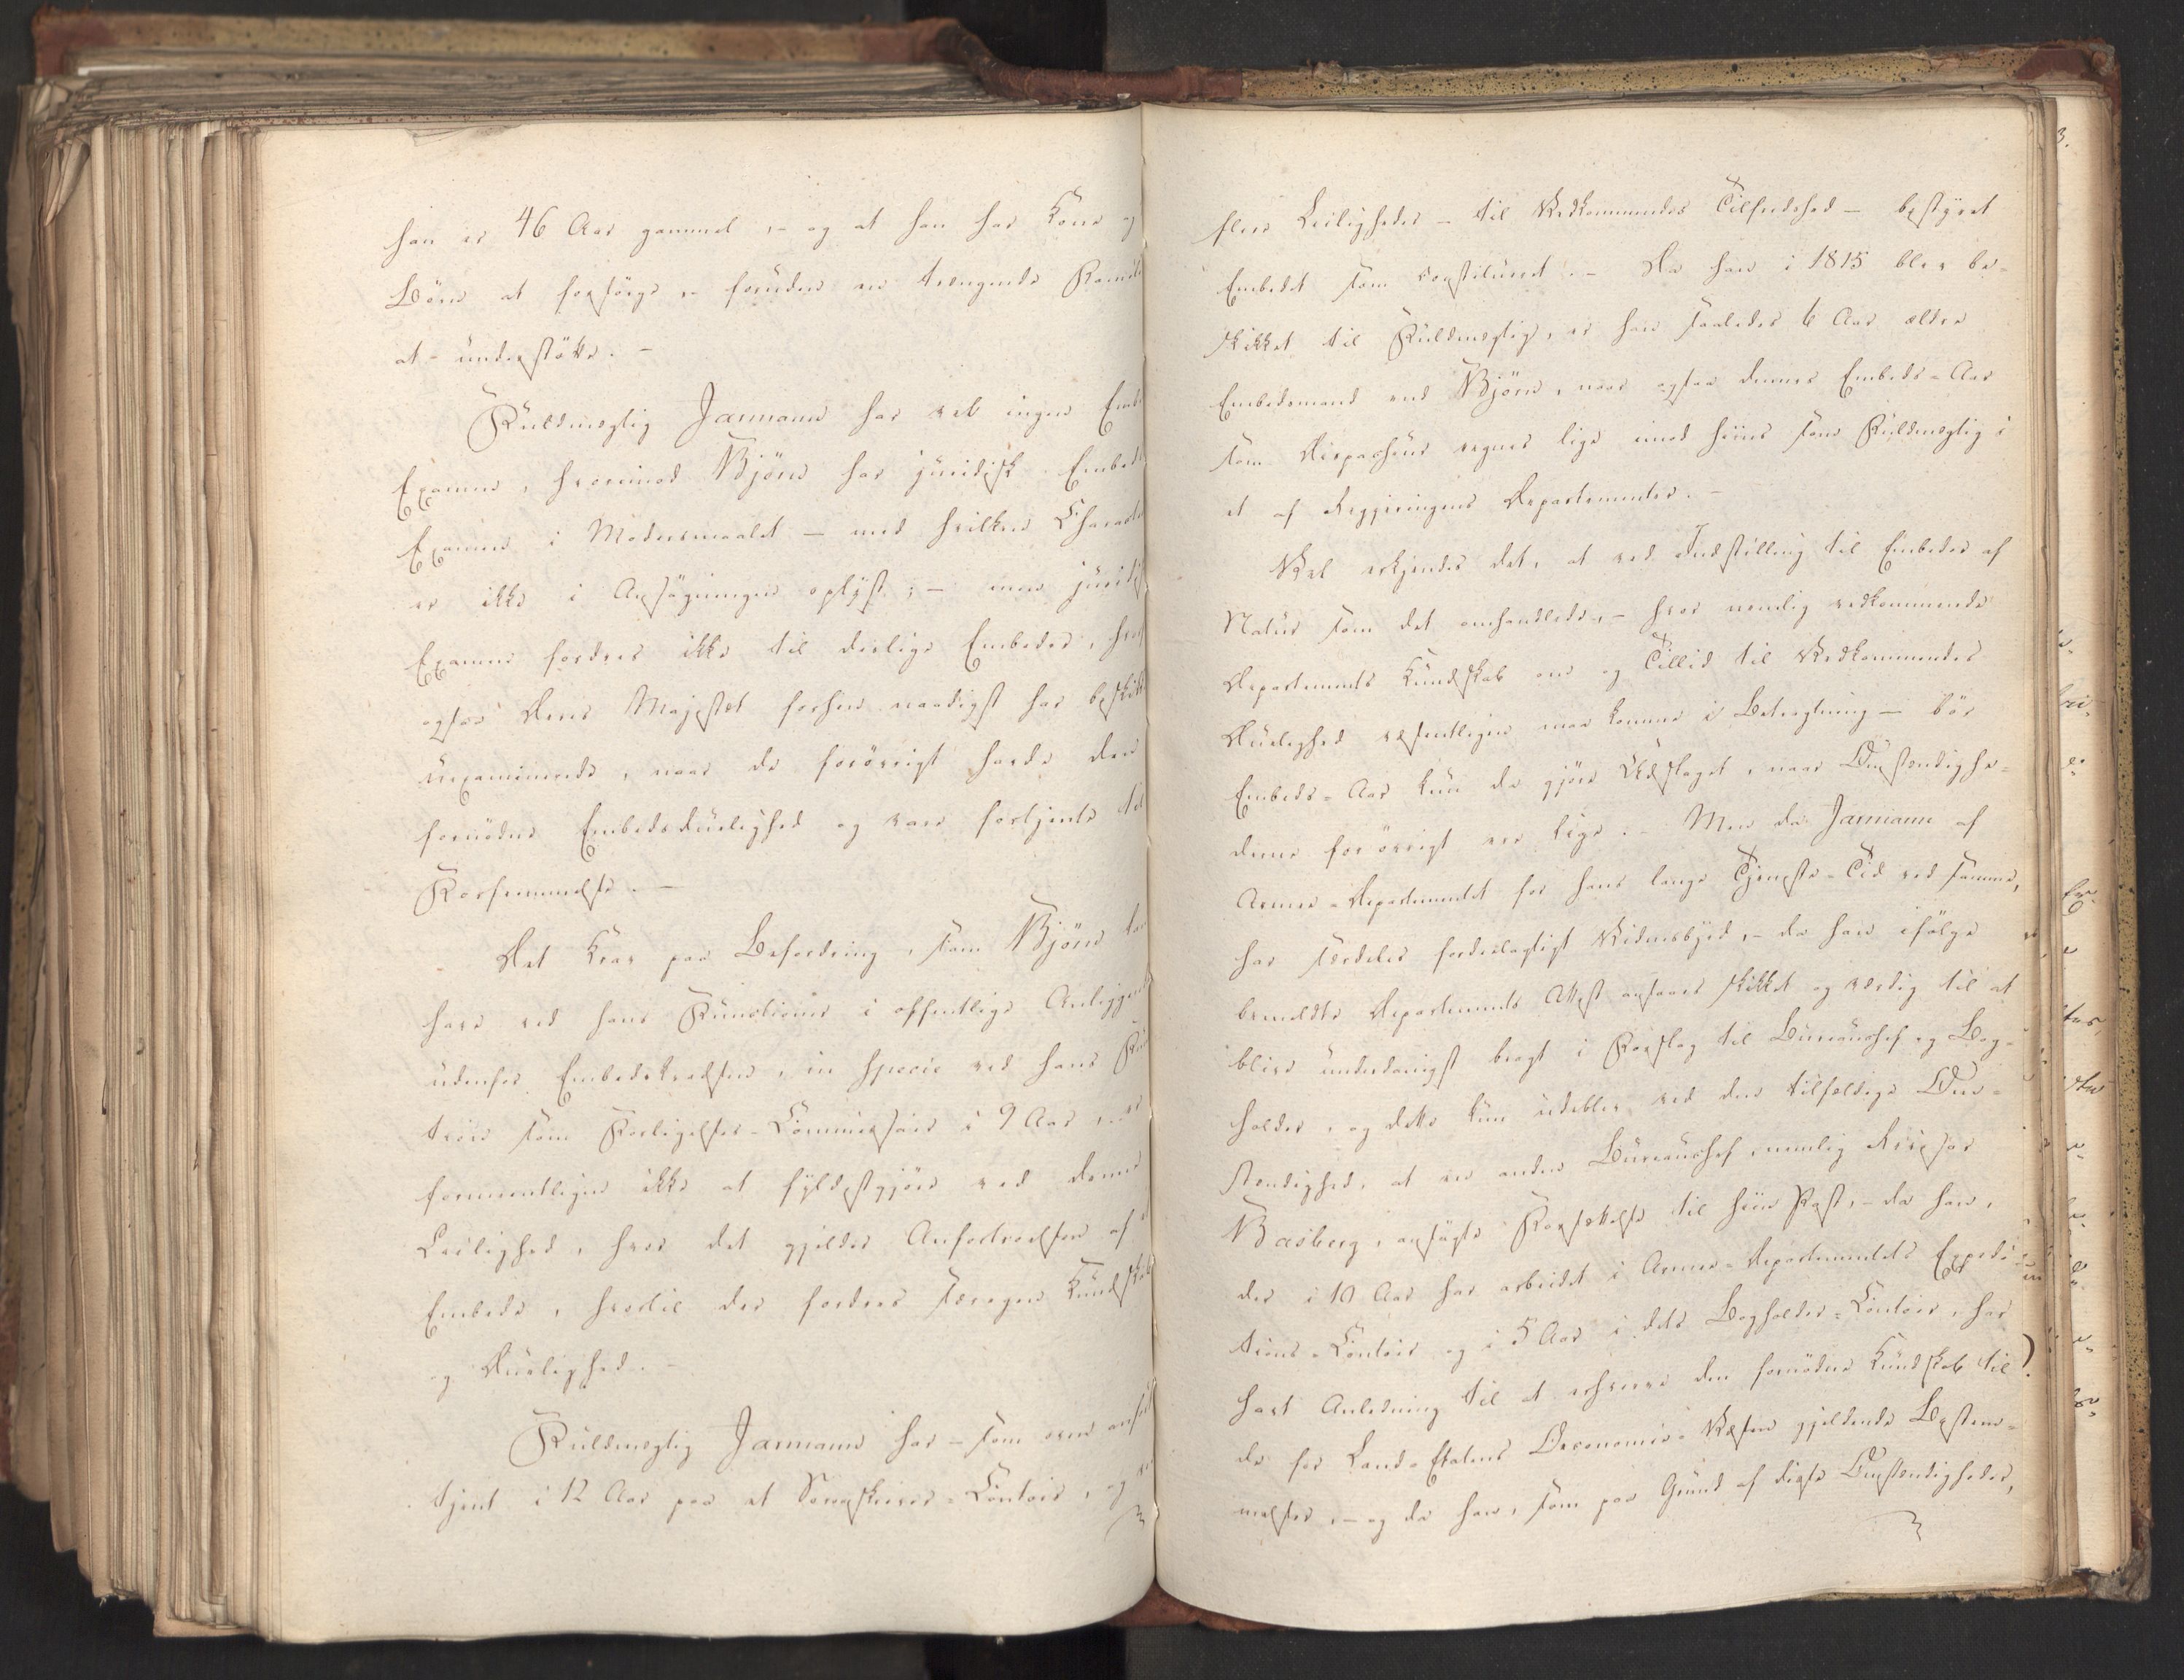 han er 46 Aar gammel, – og at han har Kone og
Börn at forsörge, – foruden en trængende Famili
at understötte. –
Fuldmægtig Jarmann har vel ingen Emb
Examen, hvorimod Björn har juridisk Embed
Examen i Modersmaalet – med hvilken Charact
er ikke i Ansøgningen oplyst; – men juridi
Examen fordres ikke til deslige Embeder, hvo
ogsaa Deres Majestæt forhen naadigst har beskik
uexaminerede, naar de forövrigt havde den
fornödne Embedsduelighed og vare fortjente til
Forfremmelse. –
Det Krav paa Befordring, som Björn
have ved hans Functioner i offentlige Anliggend
udenfor Embedskredsen, in specie ved hans
som Forligelses-Commissair i 9 Aar,
formeentligen ikke at fyldestgjöre ved denne
Leilighed, hvor det gjelder Anfortroelsen af
Embede, hvortil der fordres særegen Kundskab
og Duelighed. –
Fuldmægtig Jarmann har – som oven anfört
tjent i 12 Aar paa et Sorenskriver-Contoir, og
flere Leiligheder – til Vedkommendes Tilfredshed – bestyret
Embedet som constitueret. – Da han i 1815 blev be-
skikket til Fuldmægtig, er han saaledes 6 Aar ældre
Embedsmand end Björn, naar ogsaa dennes Embeds-Aar
som Dispacheur regnes lige imod hiins som Fuldmægtig i
et af Regjeringens Departementer. –
Vel erkjendes det, at ved Indstilling til Embeder af
Natur som det omhandlede, – hvor nemlig vedkommende
Departements Kundskab om og Tillid til Vedkommendes
Duelighed væsentligen maa komme i Betragtning – bör
Embeds-Aar kun da gjöre Udslaget, naar Omstændighe-
derne for övrigt ere lige. – Men da Jarmann af
Armee-Departementet for hans lange Tjeneste-Tid ved samme,
har særdeles fordeelagtigt Vidnesbyrd, – da han ifölge
bemeldte Departements Attest ansaaes skikket og værdig til at
blive underdanigst bragt i Forslag til Bureauchef og Bog-
holder, og dette kun udeblev ved den tilfældige Om-
stændighed, at en anden Bureauchef, nemlig Revisor
Basberg, ansögte Forsættelse til hiin Post, – da han,
der i 10 Aar har arbeidet i Armee-Departementets Expedi-
tions-Contoir og i 5 Aar i dets Bogholder-Contoir, har
havt Anledning til at erhverve den fornödne Kundskab til
de for Land-Etatens Oeconomie-Væsen gjeldende Bestem-
melser, – og da han, som paa Grund af disse Omstændigheder,